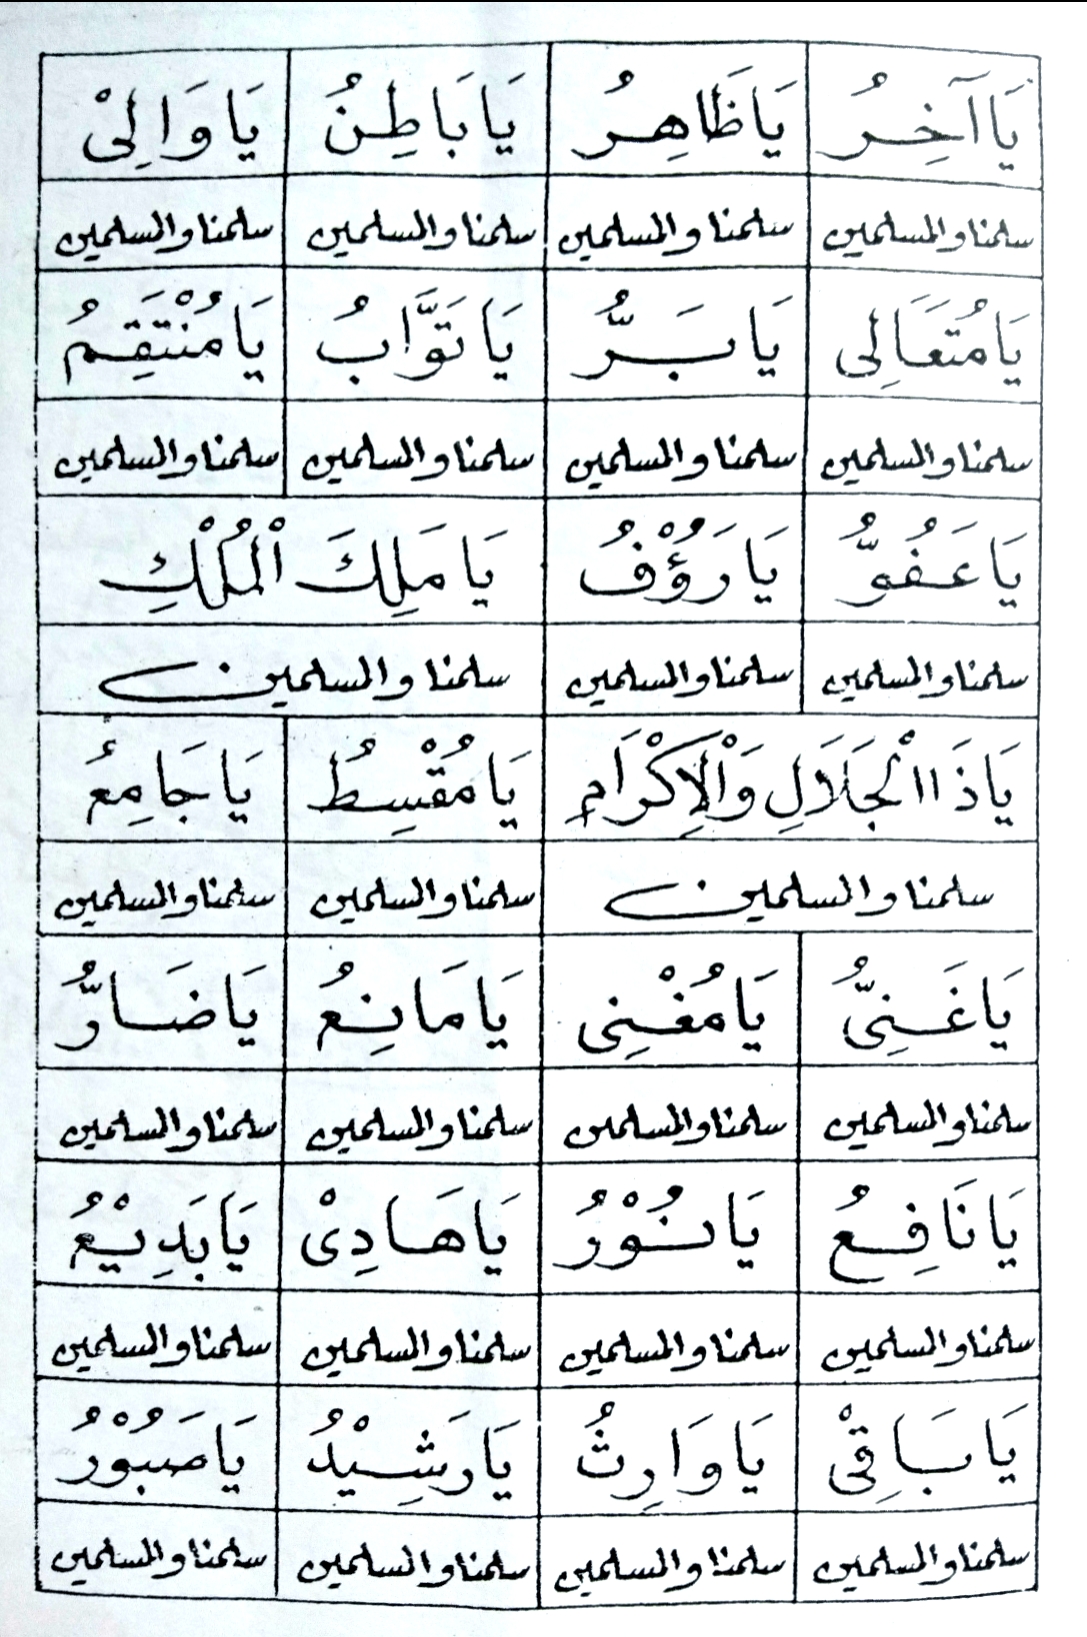 يَا آخِرُ يَا ظَاهِرُ يَا بَاطِنُ يَا وَالِىْ
سلمنا والمسلمين سلمنا والمسلمين سلمنا والمسلمين سلمنا والمسلمين
يَا مُتَعَالِى يَا بَرُّ يَا تَوَّابُ يَا مُنْتَقِمُ
سلمنا والمسلمين سلمنا والمسلمين سلمنا والمسلمين سلمنا والمسلمين
يَا عَفُوُّ يَا رَؤُفُ يَا مَلِكَ الْمُلْكِ
سلمنا والمسلمين سلمنا والمسلمين سلمنا والمسلمين
يَا ذَا الْجَلَالِ وَالْاِكْرَامِ يَا مُقْسِطُ يَا جَامِعُ
سلمنا والمسلمين سلمنا والمسلمين سلمنا والمسلمين
يَا غَنِىُّ يَا مُغْنِى يَا مَانِعُ يَا ضَارُّ
سلمنا والمسلمين سلمنا والمسلمين سلمنا والمسلمين سلمنا والمسلمين
يَا نَافِعُ يَا نُوْرُ يَا هَادِىْ يَا بَدِيْعُ
سلمنا والمسلمين سلمنا والمسلمين سلمنا والمسلمين سلمنا والمسلمين
يَا بَاقِىْ يَا وَارِثُ يَا رَشِيْدُ يَا صَبُوْرُ
سلمنا والمسلمين سلمنا والمسلمين سلمنا والمسلمين سلمنا والمسلمين